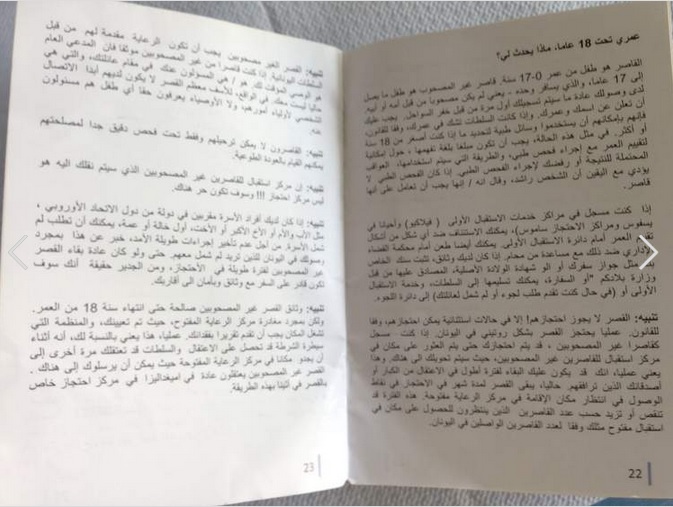 عمري تحت 18 عاما، ماذا يحدث لي؟
القاصر هو طفل من عمر 0-17 سنة. قاصر غير المصحوب هو طفل ما يصل
إلى 17 عاما، والذي يسافر وحده - يعني لم يكن مصحوبا من قبل أمه أو أبيه.
لدى وصولك عادة ما سيتم تسجيلك أول مرة من قبل خفر السواحل. يجب عليك
أن تعلن عن اسمك وعمرك. وإذا كانت السلطات تشك في عمرك، وفقا للقانون،
فإنهم بإمكانهم أن يستخدموا وسائل طبية لتحديد ما إذا كنت أصغر من 18 سنة
أو أكثر. في مثل هذه الحالة، يجب أن تكون مبلغا بلغة تفهمها، حول إمكانية
لتقييم العمر مع إجراء فحص طبي، والطريقة التي سيتم استخدامها، العواقب
المحتملة للنتيجة أو رفضك لإجراء الفحص الطبي. إذا كان الفحص الطبي لا
يؤدي مع اليقين أن الشخص راشد، وقال انه / إنها يجب أن تعامل على أنها
قاصر.
إذا كنت مسجل في مراكز خدمات الاستقبال الأولى ( فيلاكيو) وأحيانا في
ليسفوس ومراكز الاحتجاز ساموس)، يمكنك الاستئناف ضد أي شكل من أشكال
تقييم العمر أمام دائرة الاستقبال الأولى. يمكنك أيضا طعن أمام محكمة القضاء
الإداري ضد ذلك مع مساعدة من محام. إذا كان لديك وثائق، تثبت سنك الخاص
مثل جواز سفرك أو الو شهادة الولادة الأصلية، المصادق عليها من قبل
وزارة بلادكم "أو السفارة، يمكنك تسليمها إلى السلطات، وخدمة الاستقبال
الأولى أو (في حال كنت تقدم طلب لجوء أو لم شمل لعائلتك) إلى دائرة اللجوء.
تلبيه: القصر لا يجوز احتجازهم! إلا في حالات استثنائية يمكن احتجازهم، وفقا
للقانون. عمليا يحتجز القصر بشكل روتيني في اليونان. إذا كنت مسجل
كقاصرا غير المصحوبين ، قد يتم احتجازك حتى يتم العثور على مكان في
مركز استقبال للقاصرين غير المصحوبين، حيث سيتم تحويلك الى هناك. وهذا
يعني عمليا، انك قد يكون عليك البقاء لفترة أطول في الاعتقال من الكبار أو
أصدقائك الذين ترافقهم. حاليا، يبقى القصر لمدة شهر في الاحتجاز في نقاط
الوصول في انتظار مكان الإقامة في مركز الرعاية مفتوحة. هذه الفترة قد
تنقص أو تزيد حسب عدد القاصرين الذين ينتظرون للحصول على مكان في
استقبال مفتوح مثلك وفقا لعدد القاصرين الواصلين في اليونان.
22
تلبيه: القصر الغير مصحوبين يجب أن تكون الرعاية مقدمة لهم من قبل
السلطات اليونانية. إذا كنت قاصرا من غير المصحوبين موثقا فان المدعي العام
هو الوصي المؤقت لك. هو / هي المسؤول عنك، في مقام عائلتك، والتي هي
حاليا ليست معك. في الواقع، للأسف معظم القصر لا يكون لديهم أبدا الاتصال
الشخصي لأولياء أمورهم، ولا الأوصياء يعرفون حقا أي طفل هم مسئولون
عنه.
تلبيه: القاصرون لا يمكن ترحيلهم وفقط تحت فحص دقيق جدا لمصلحتهم
يمكنهم القيام بالعودة الطوعية.
تلبيه: إن مركز استقبال للقاصرين غير المصحوبين الذي سيتم نقلك اليه هو
ليس مركز احتجاز !!! وسوف تكون حر هناك.
تلبيه: إذا كان لديك أفراد الأسرة مقربين في دولة من دول الاتحاد الأوروبي ،
مثل الأب والأم أو الأخ الأكبر أو الأخت، أول خالة أو عمة، يمكنك أن تطلب لم
شمل الأسرة. من أجل عدم تأخير إجراءات طويلة الأمد، خبر عن هذا بمجرد
وصولك في اليونان للذين تريد لم شمل معهم. حتى ولو كان عادة بقاء القصر
غير المصحوبين لفترة طويلة في الاحتجاز، ومن الجدير حقيقة أنك سوف
تكون قادر على السفر مع وثائق وبأمان الى أقاربك.
تلبيه: وثائق القصر غير المصحوبين صالحة حتى انتهاء سنة 18 من العمر.
ولكن بمجرد مغادرة مركز الرعاية المفتوح، حيث تم تعيينك، والمنظمة التي
تشغل المكان يجب أن تقدم تقريرا بفقدانك. عمليا، هذا يعني بالنسبة لك، أنه أثناء
سيطرة الشرطة قد تحصل على الاعتقال والسلطات قد تعتقلك مرة أخرى إلى
أن يجدو مكانا في مركز الرعاية المفتوحة حيث يمكن أن يرسلوك إلى هناك .
القصر غير المصحوبين يعتقلون عادة في اميغداليزا في مركز احتجاز خاص
بالقصر في أثينا بهذه الطريقة.
23